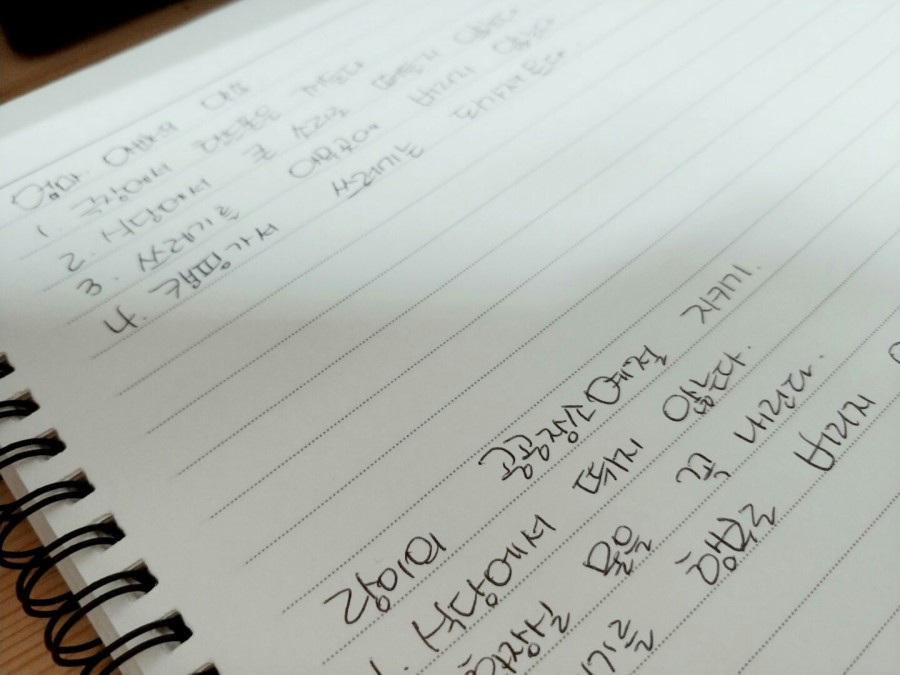 엄마. 아빠의
1. 극장에서 핸드폰은 끄는다
2. 식당에서 큰 소리로 떠들지 않는다
3. 쓰레기를 아무곳에 버리지 않는다
4. 캠핑가서 쓰레기는 되가져온다
랑이의 공공장소예절 지키기.
1. 식당에서 뛰지 않는다.
화장실 물을 꼭 내린다.
기를 함부로 버리지